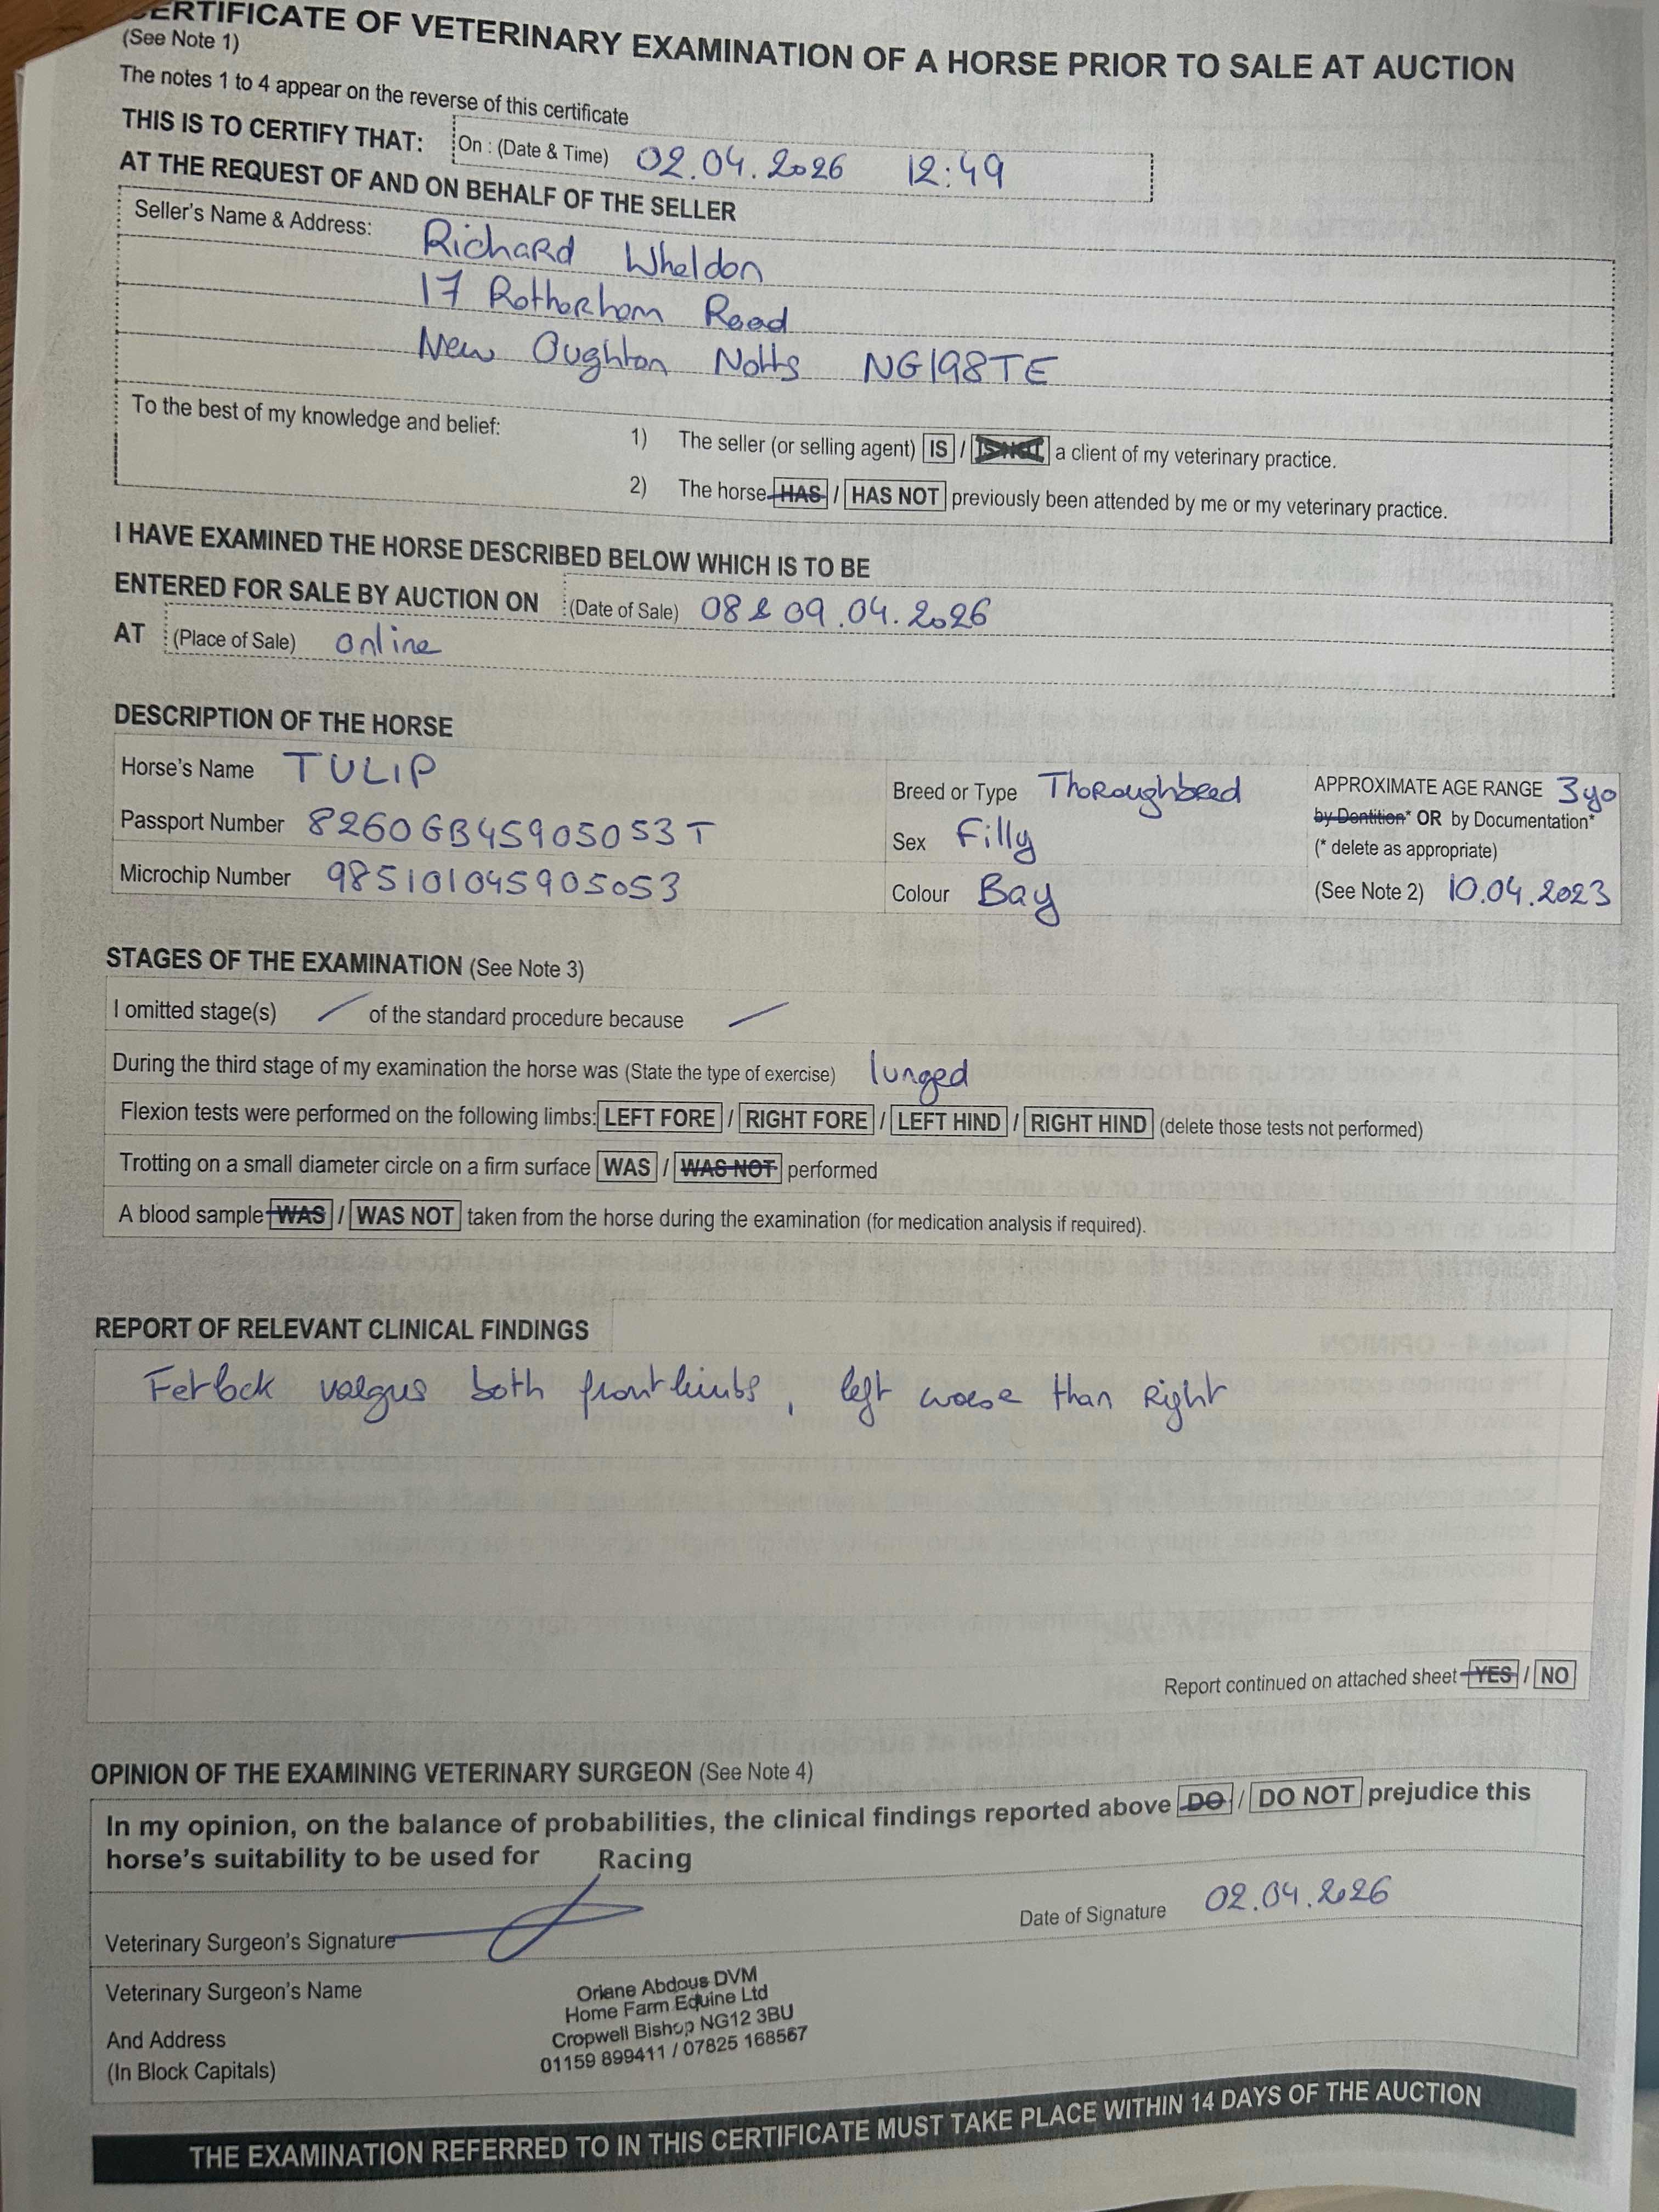 CERTIFICATE OF VETERINARY EXAMINATION OF A HORSE PRIOR TO SALE AT AUCTION
(See Note 1)
The notes 1 to 4 appear on the reverse of this certificate
THIS IS TO CERTIFY THAT: On : (Date & Time) 02.04.2026 12:49
AT THE REQUEST OF AND ON BEHALF OF THE SELLER
Seller's Name & Address: Richard Wheldon
17 Rotherham Road
New Oughton Notts NG198TE
To the best of my knowledge and belief:
1) The seller (or selling agent) IS / IS NOT a client of my veterinary practice.
2) The horse HAS / HAS NOT previously been attended by me or my veterinary practice.
I HAVE EXAMINED THE HORSE DESCRIBED BELOW WHICH IS TO BE
ENTERED FOR SALE BY AUCTION ON (Date of Sale) 08 & 09.04.2026
AT (Place of Sale) online
DESCRIPTION OF THE HORSE
Horse's Name TULIP
Passport Number 8260GB45905053T
Microchip Number 985101045905053
Breed or Type Thoroughbred
Sex Filly
Colour Bay
APPROXIMATE AGE RANGE 3yo
by Dentition* OR by Documentation*
(* delete as appropriate)
(See Note 2) 10.04.2023
STAGES OF THE EXAMINATION (See Note 3)
I omitted stage(s) / of the standard procedure because /
During the third stage of my examination the horse was (State the type of exercise) lunged
Flexion tests were performed on the following limbs: LEFT FORE / RIGHT FORE / LEFT HIND / RIGHT HIND (delete those tests not performed)
Trotting on a small diameter circle on a firm surface WAS / WAS NOT performed
A blood sample WAS / WAS NOT taken from the horse during the examination (for medication analysis if required).
REPORT OF RELEVANT CLINICAL FINDINGS
Fetlock valgus both front limbs, left worse than right
Report continued on attached sheet YES / NO
OPINION OF THE EXAMINING VETERINARY SURGEON (See Note 4)
In my opinion, on the balance of probabilities, the clinical findings reported above DO / DO NOT prejudice this
horse's suitability to be used for Racing
Veterinary Surgeon's Signature
Date of Signature 02.04.2026
Veterinary Surgeon's Name
And Address
(In Block Capitals)
Oriane Abdous DVM
Home Farm Equine Ltd
Cropwell Bishop NG12 3BU
01159 899411 / 07825 168567
THE EXAMINATION REFERRED TO IN THIS CERTIFICATE MUST TAKE PLACE WITHIN 14 DAYS OF THE AUCTION